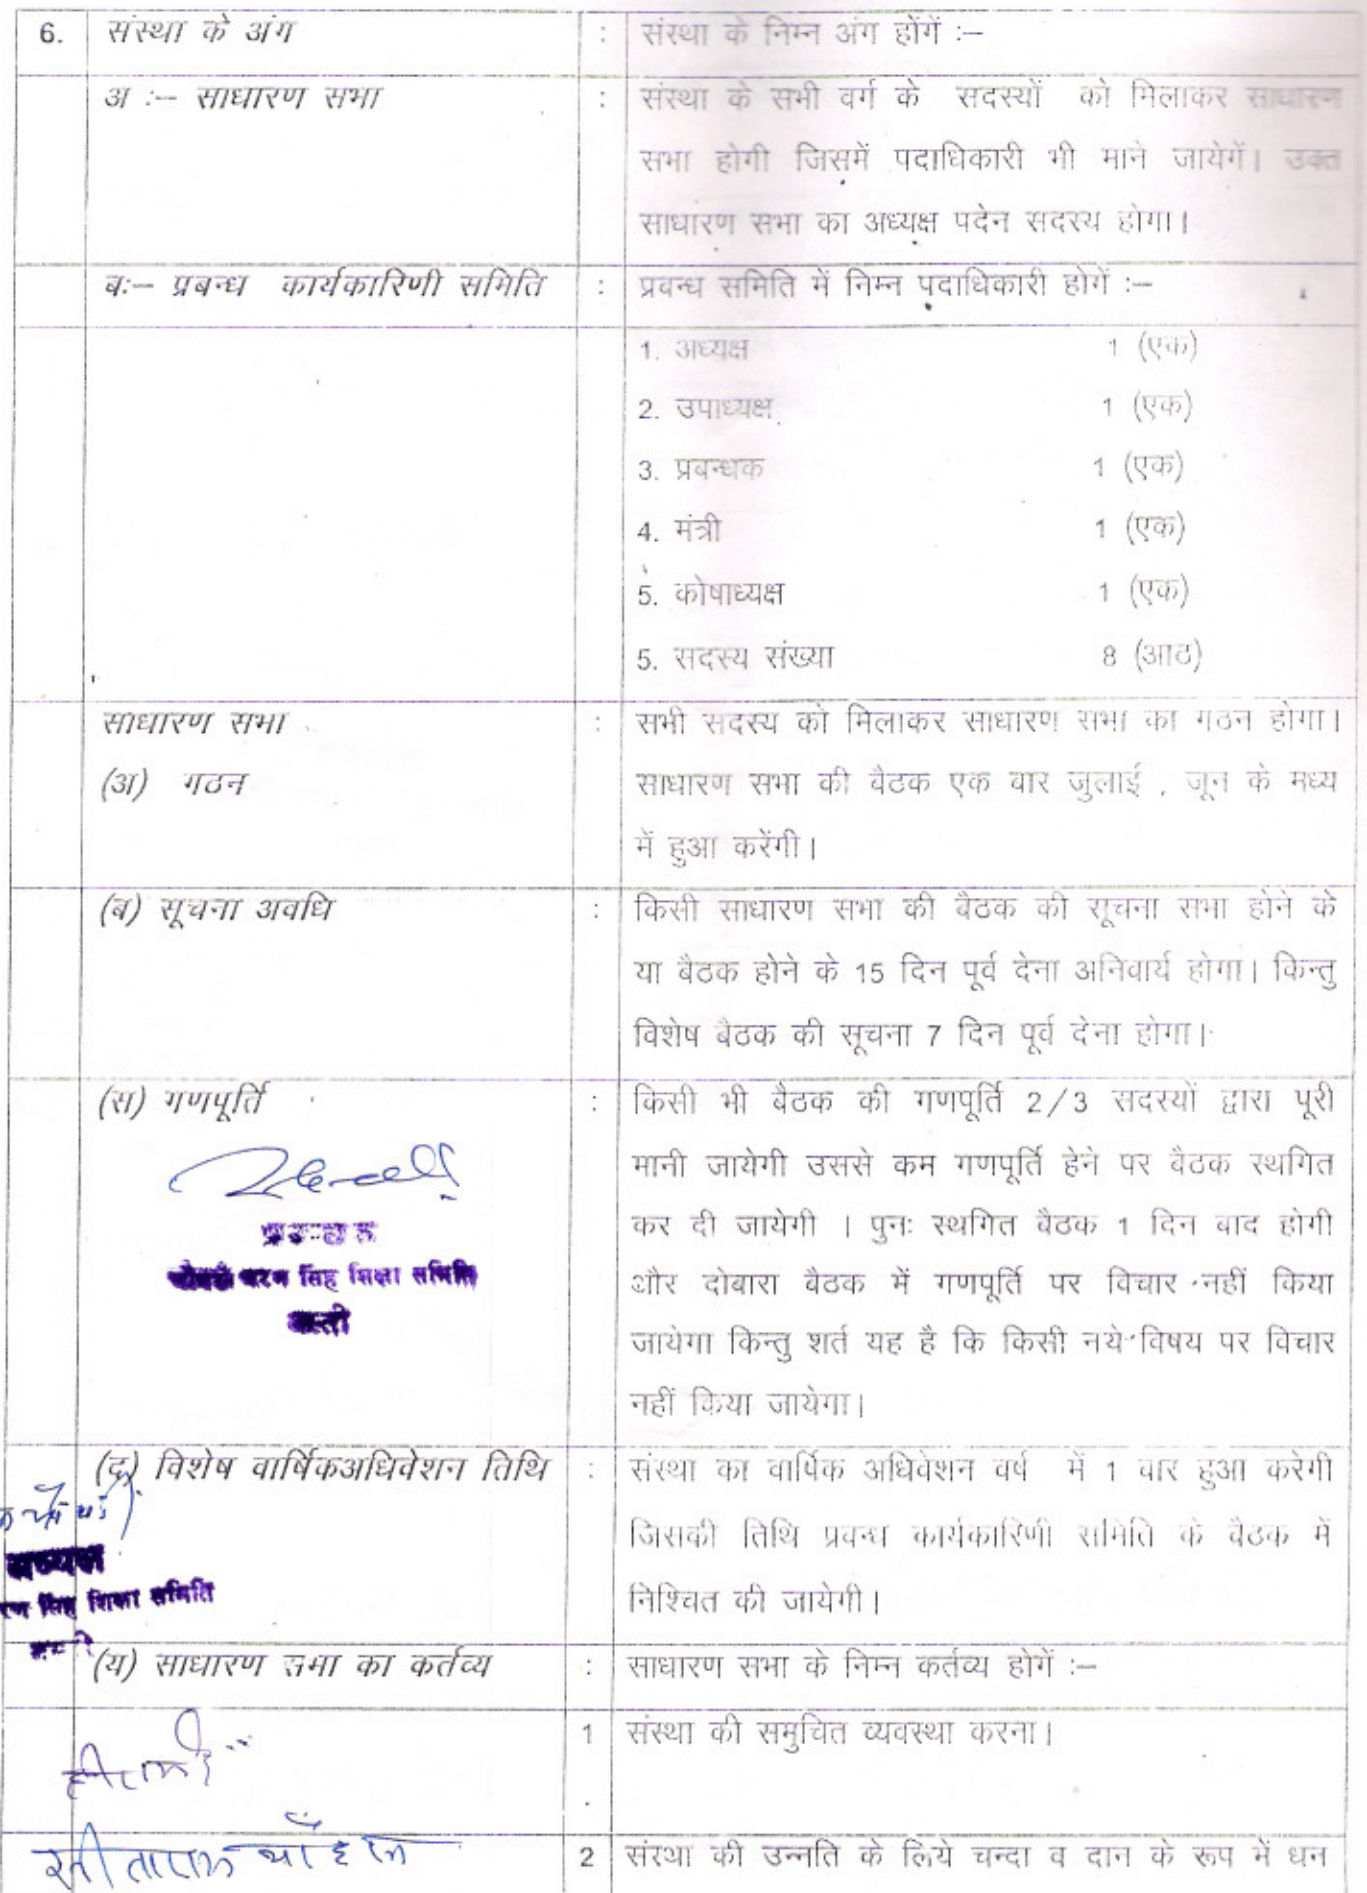 6. संस्था के अंग : संस्था के निम्न अंग होंगें :–
अ :– साधारण सभा : संस्था के सभी वर्ग के सदस्यों को मिलाकर साधारण
सभा होगी जिसमें पदाधिकारी भी माने जायेगें। उक्त
साधारण सभा का अध्यक्ष पदेन सदस्य होगा।
बः– प्रबन्ध कार्यकारिणी समिति : प्रवन्ध समिति में निम्न पदाधिकारी होगें :–
1. अध्यक्ष 1 (एक)
2. उपाध्यक्ष 1 (एक)
3. प्रबन्धक 1 (एक)
4. मंत्री 1 (एक)
5. कोषाध्यक्ष 1 (एक)
5. सदस्य संख्या 8 (आठ)
साधारण सभा : सभी सदस्य को मिलाकर साधारण सभा का गठन होगा।
(अ) गठन साधारण सभा की बैठक एक वार जुलाई , जून के मध्य
में हुआ करेंगी।
(ब) सूचना अवधि : किसी साधारण सभा की बैठक की सूचना सभा होने के
या बैठक होने के 15 दिन पूर्व देना अनिवार्य होगा। किन्तु
विशेष बैठक की सूचना 7 दिन पूर्व देना होगा।
(स) गणपूर्ति : किसी भी बैठक की गणपूर्ति 2/3 सदस्यों द्वारा पूरी
मानी जायेगी उससे कम गणपूर्ति हेने पर बैठक स्थगित
कर दी जायेगी । पुनः स्थगित बैठक 1 दिन वाद होगी
और दोबारा बैठक में गणपूर्ति पर विचार नहीं किया
जायेगा किन्तु शर्त यह है कि किसी नये विषय पर विचार
नहीं किया जायेगा।
प्रबन्धक
चौधरी चरन सिंह शिक्षा समिति
बस्ती
(द) विशेष वार्षिकअधिवेशन तिथि : संस्था का वार्षिक अधिवेशन वर्ष में 1 वार हुआ करेगी
जिसकी तिथि प्रवन्ध कार्यकारिणी समिति के वैठक में
निश्चित की जायेगी।
अध्यक्ष
रण सिंह शिक्षा समिति
(य) साधारण सभा का कर्तव्य : साधारण सभा के निम्न कर्तव्य होगें :–
1 संस्था की समुचित व्यवस्था करना।
2 संस्था की उन्नति के लिये चन्दा व दान के रूप में धन